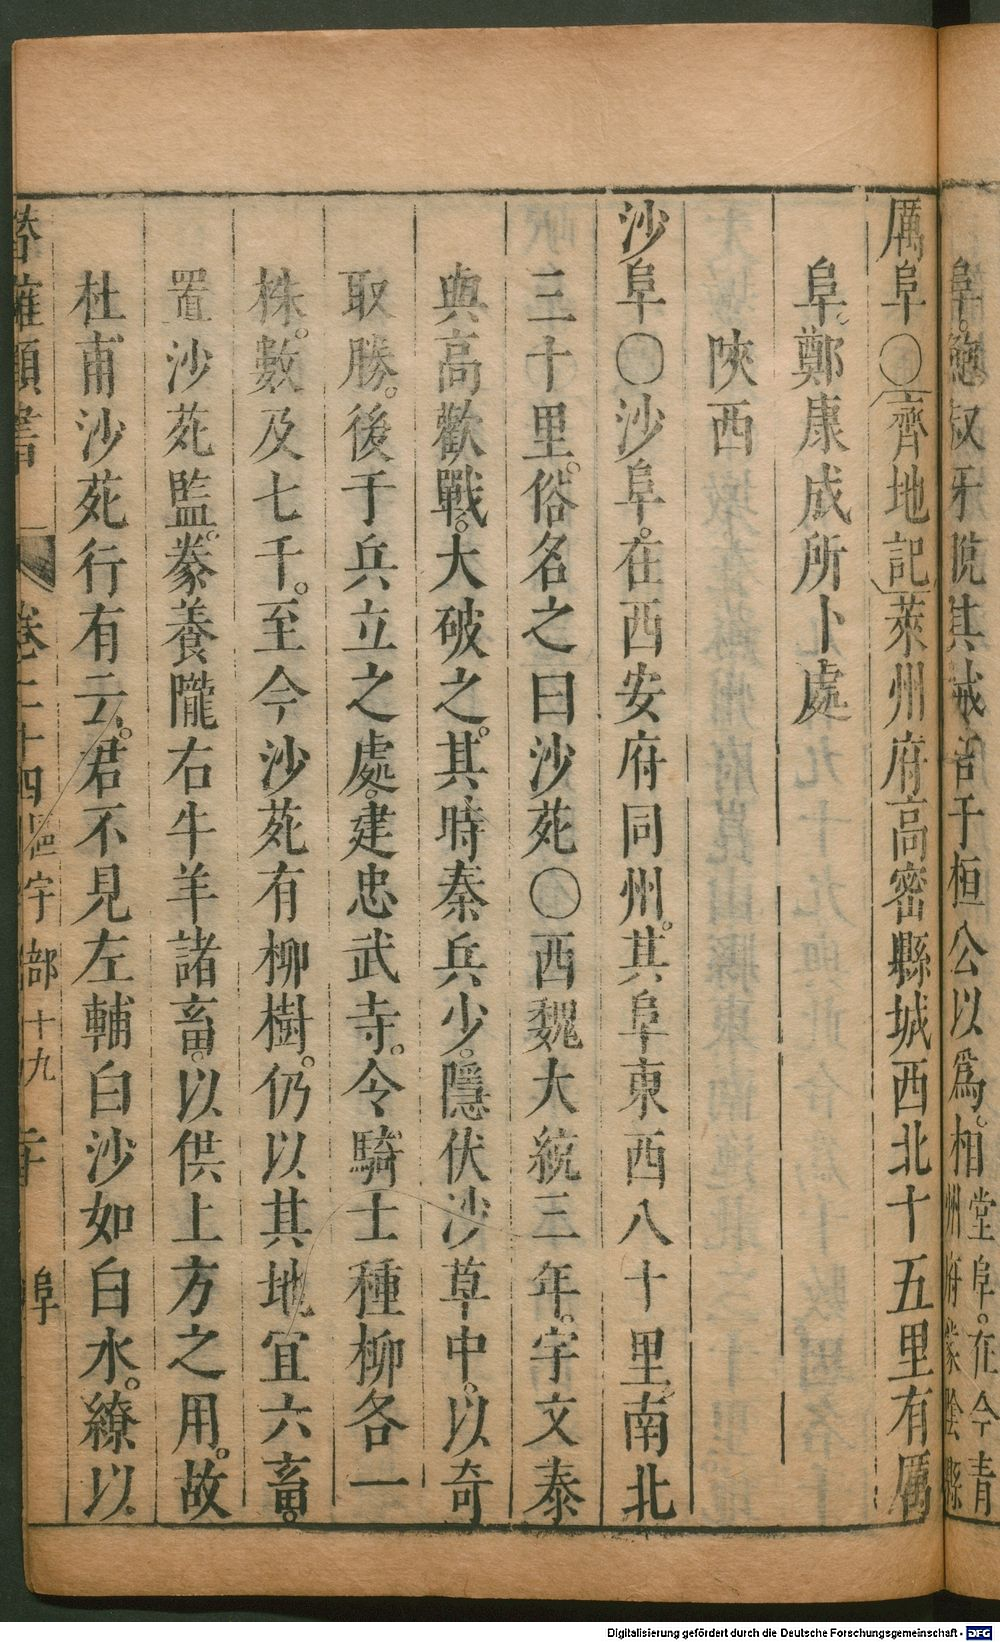 阜。鮑叔牙脫其械言于桓公以爲。相堂阜。在今青州府蒙陰縣
厲阜〇齊地記萊州府高密縣城西北十五里有厲
阜。鄭康成所卜處
陝西
沙阜〇沙阜。在西安府同州。其阜東西八十里南北
三十里。俗名之曰沙苑〇西魏大統三年。宇文泰
與高歡戰。大破之。其時秦兵少。隱伏沙草中。以奇
取勝。後于兵立之處。建忠武寺。令騎士種柳各一
株。數及七千。至今沙苑有柳樹。仍以其地宜六畜。
置沙苑監。豢養隴右牛羊諸畜。以供上方之用。故
杜甫沙苑行有云。君不見左輔白沙如白水。繚以
潛確類書 卷二十四 區宇部十九 阜
Digitalisierung gefördert durch die Deutsche Forschungsgemeinschaft - DFG